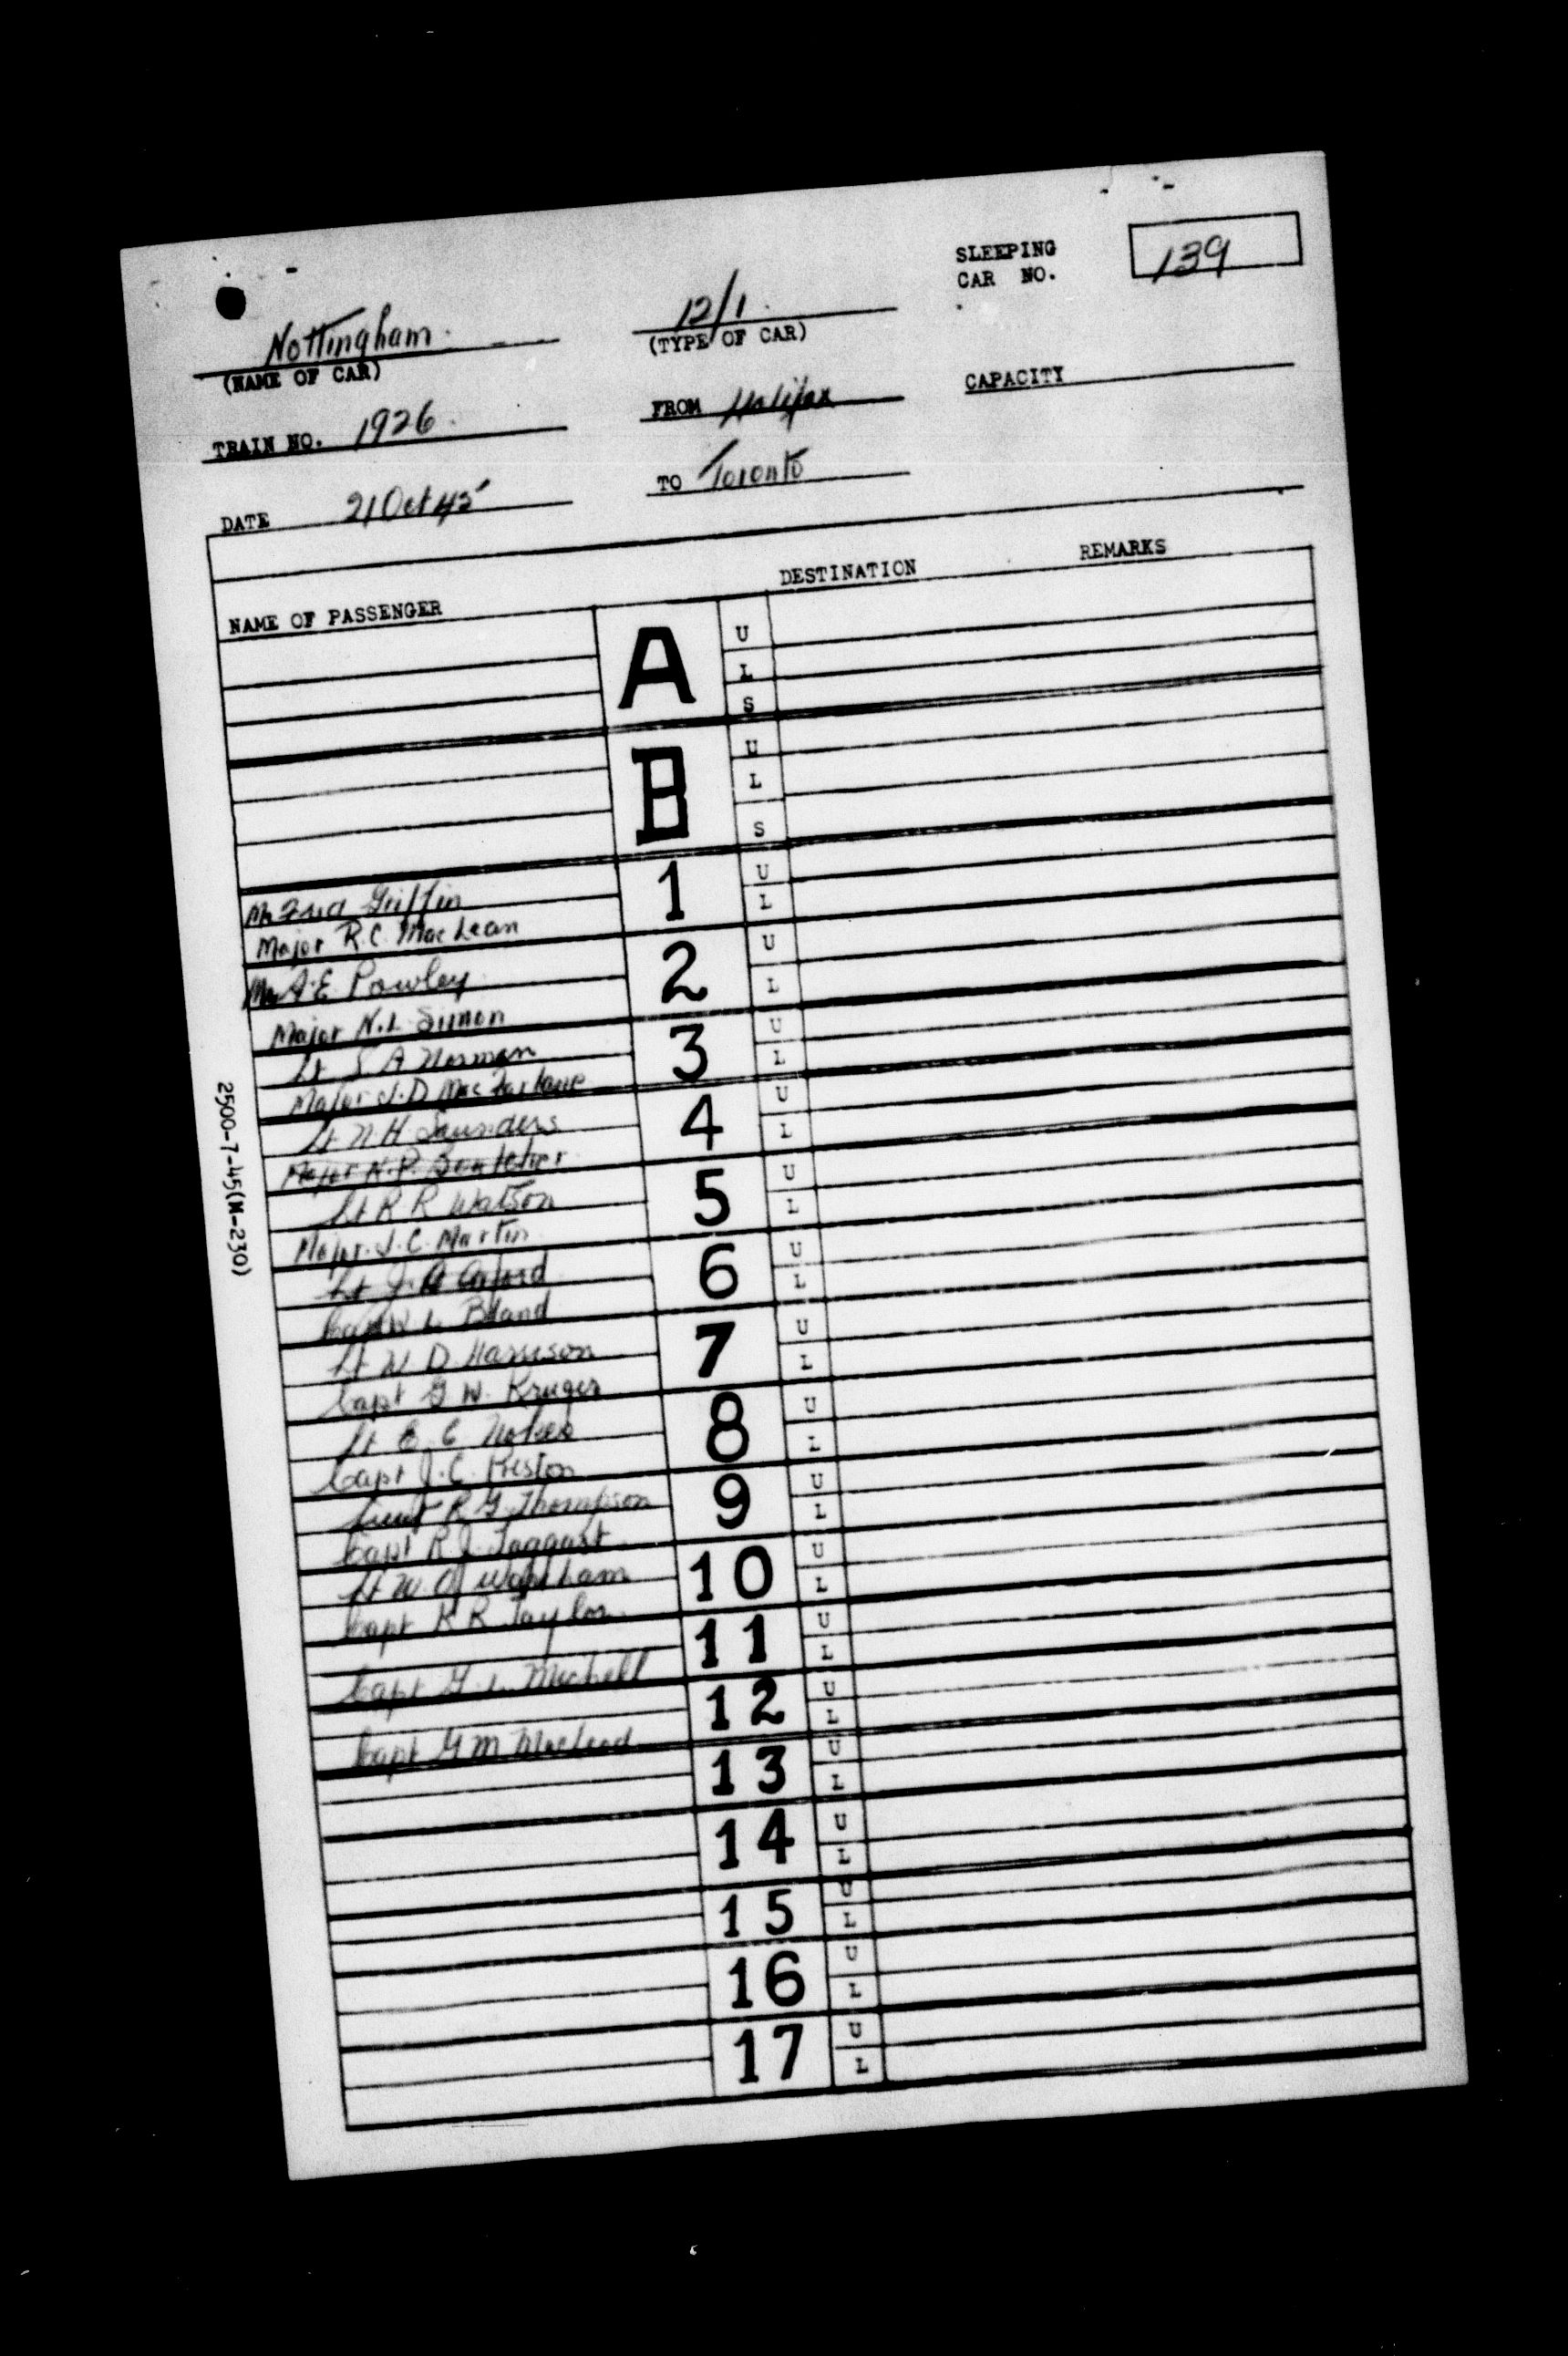 SLEEPING
CAR NO. 139
Nottingham
(NAME OF CAR)
12/1
(TYPE OF CAR)
TRAIN NO. 1926
FROM Halifax
CAPACITY
DATE 21 Oct 45
TO Toronto
NAME OF PASSENGER DESTINATION REMARKS
A U
L
S
B U
L
S
Mr Fred Griffin 1 U
Major R.C. MacLean L
Mr A.E. Powley 2 U
Major N.L. Simon L
Lt S A Norman 3 U
Major J.D. MacFarlane L
Lt N H Saunders 4 U
Major H.P. L
Lt R R Watson 5 U
Major J.C. Martin L
Lt J. A 6 U
Capt W L Bland L
Lt W D Harrison 7 U
Capt G W. Kruger L
Lt E. C. Nokes 8 U
Capt J.C. Preston L
Lieut R G Thompson 9 U
Capt R.J. Taggart L
Lt W. O. 10 U
Capt K R Taylor L
11 U
Capt G. L. Michell L
12 U
Capt G M MacLeod L
13 U
L
14 U
L
15 U
L
16 U
L
17 U
L
2500-7-45(M-230)